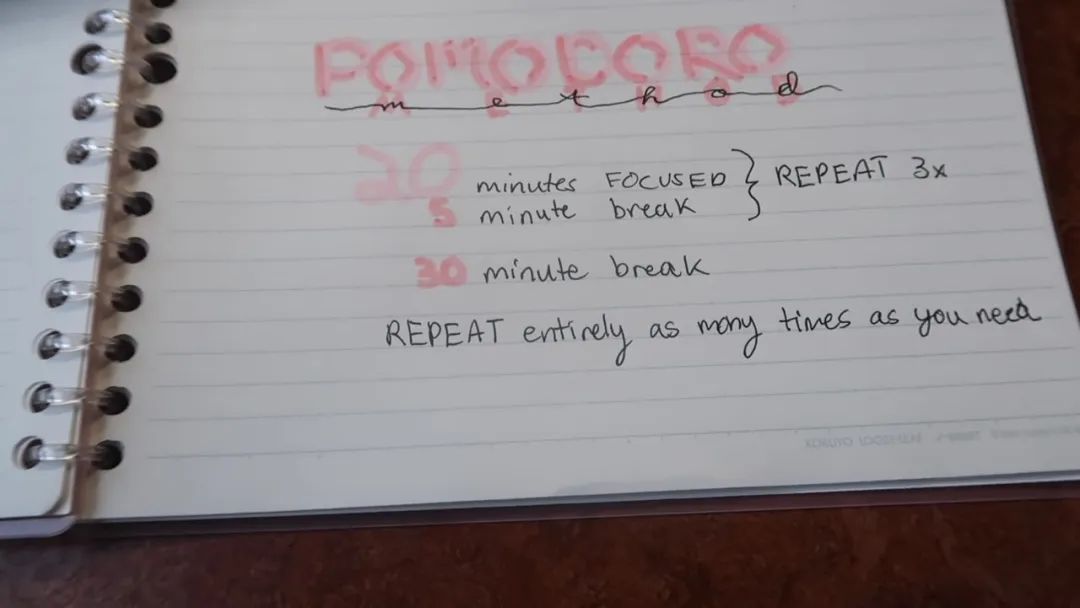 POMODORO
method
20 minutes FOCUSED } REPEAT 3x
5 minute break
30 minute break
REPEAT entirely as many times as you need
KOKUYO LOOSE-LEAF